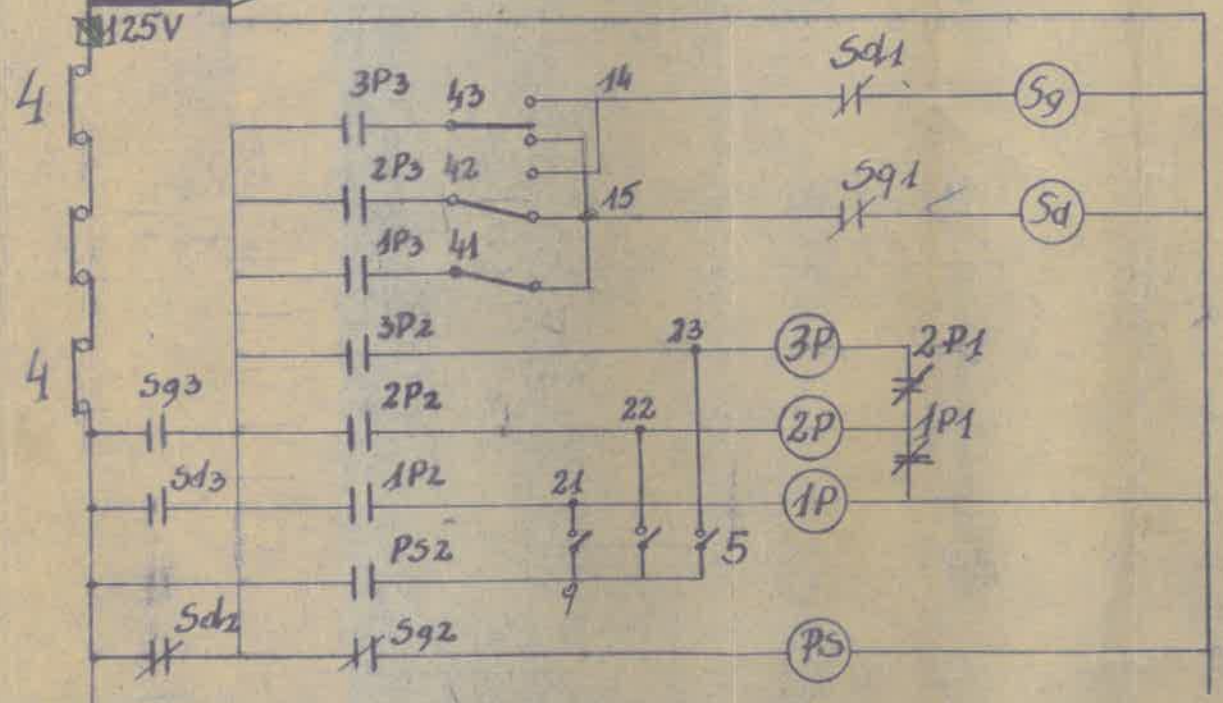 125V
Sd1
4
3P3 43 14
Sg
2P3 42
15
Sg1
Sd
1P3 41
3P2 23
3P
2P1
4
Sg3
2P2 22
2P
1P1
Sd3
1P2 21
1P
PS2
5
9
Sd2
Sg2
PS